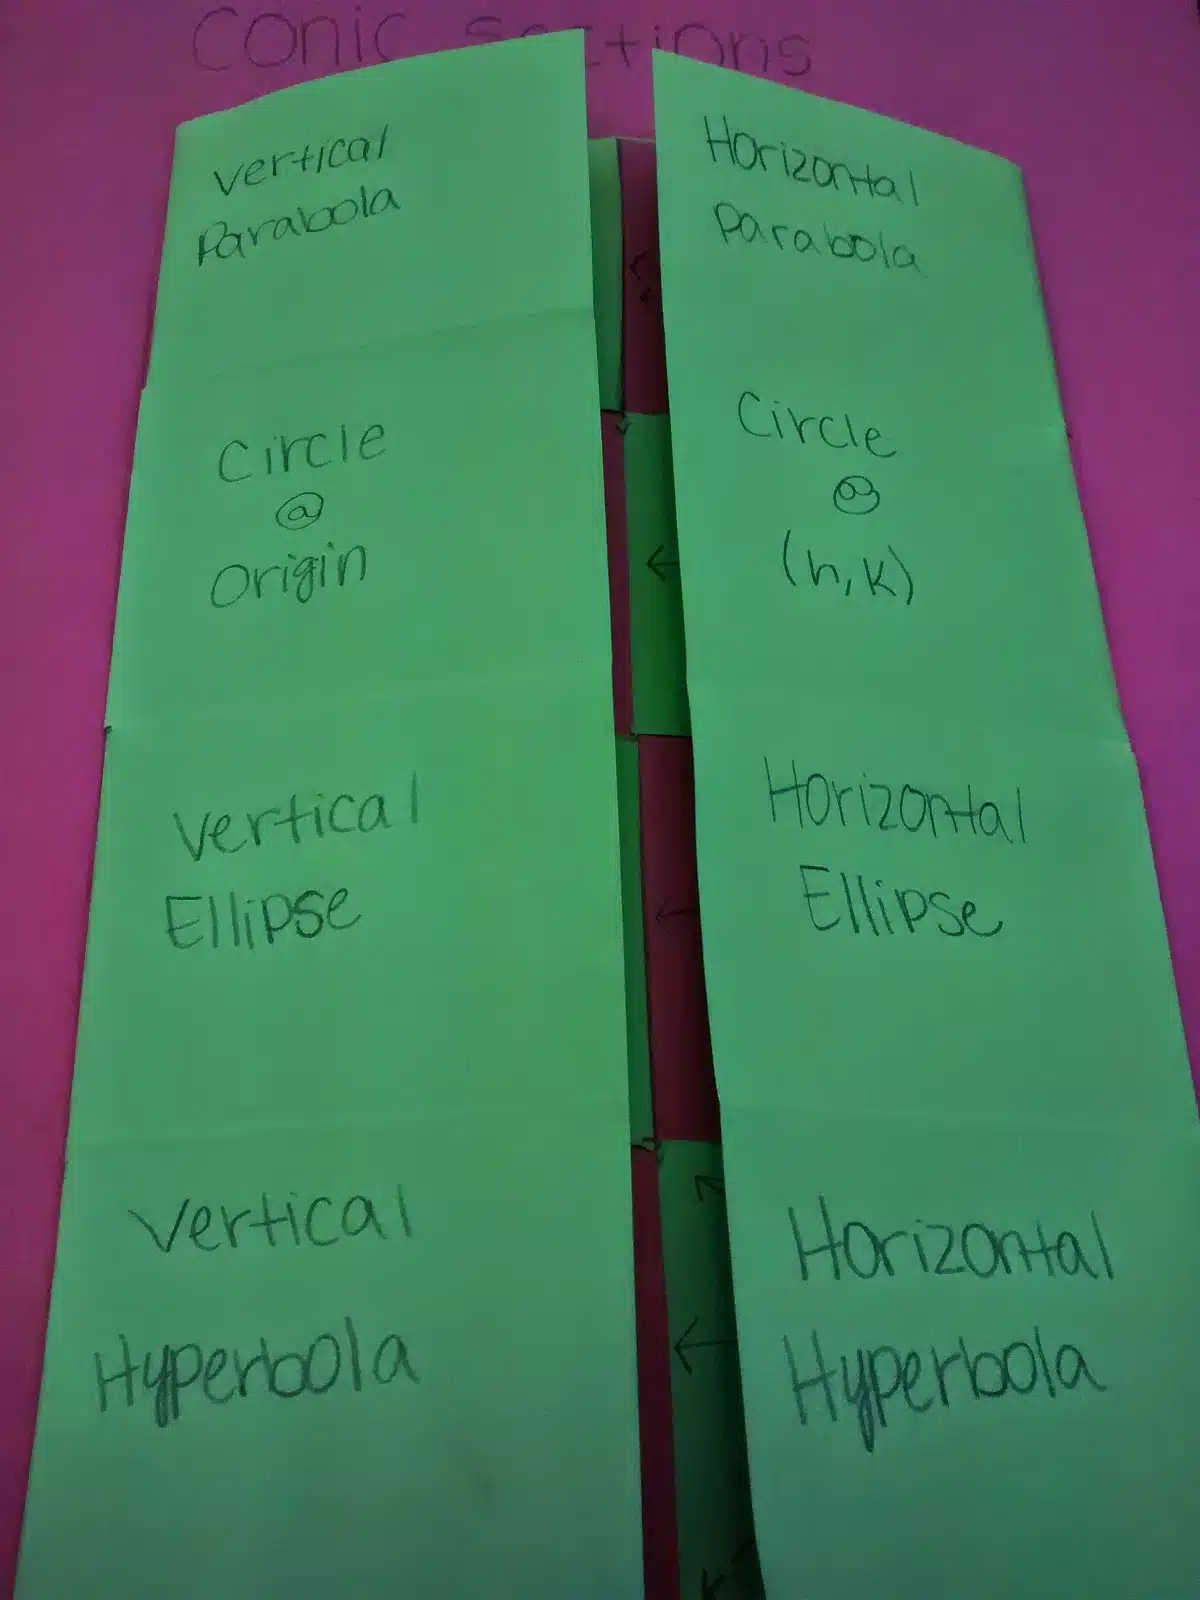 Conic sections
Vertical
Parabola
Horizontal
Parabola
Circle
@
Origin
Circle
@
(h,k)
Vertical
Ellipse
Horizontal
Ellipse
Vertical
Hyperbola
Horizontal
Hyperbola